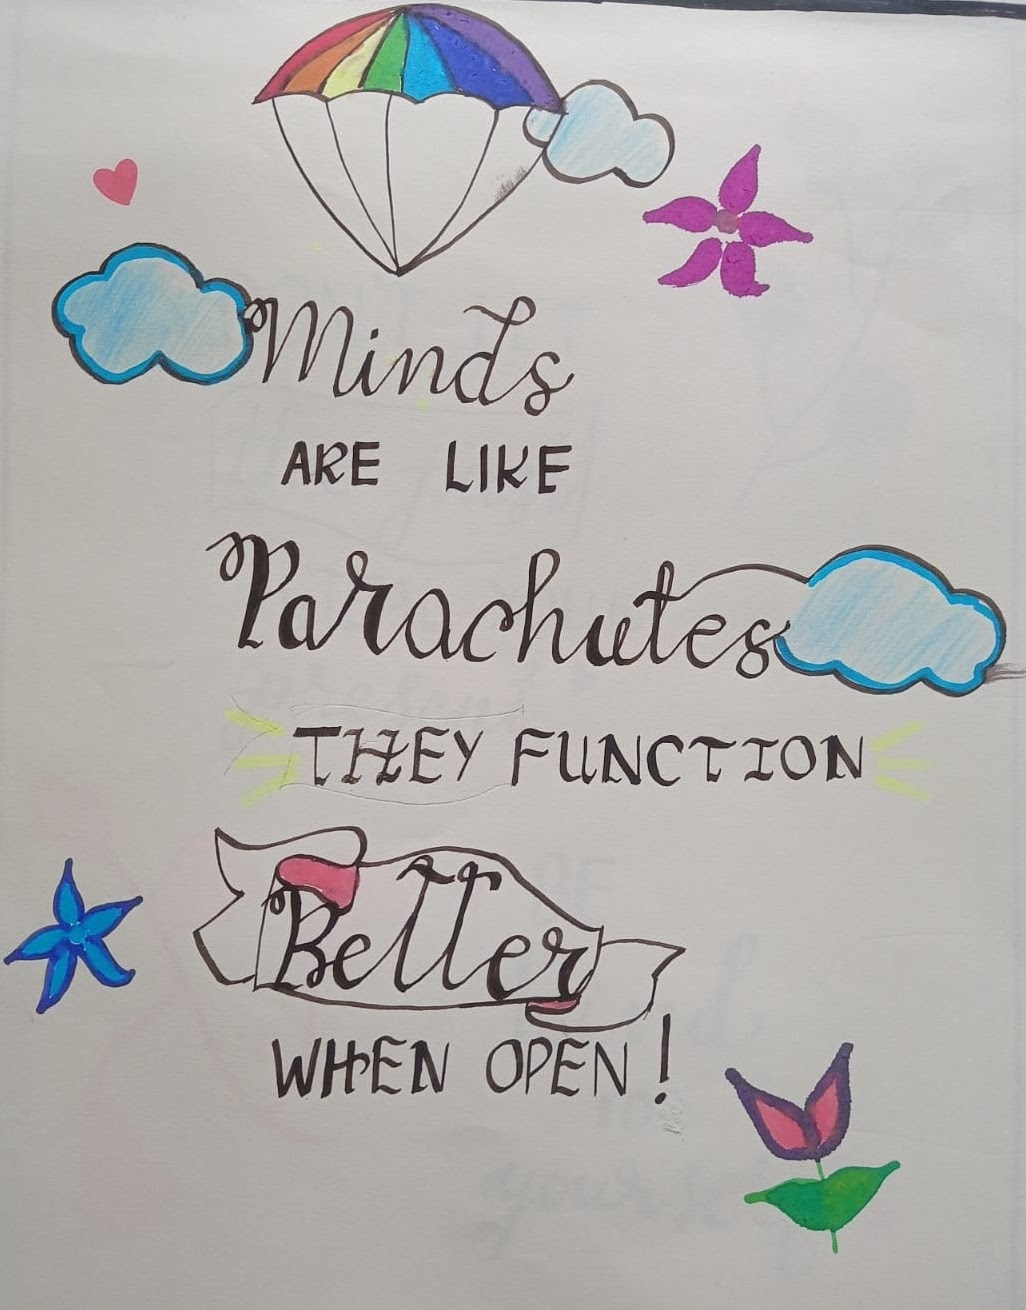 Minds
ARE LIKE
Parachutes
THEY FUNCTION
Better
WHEN OPEN!